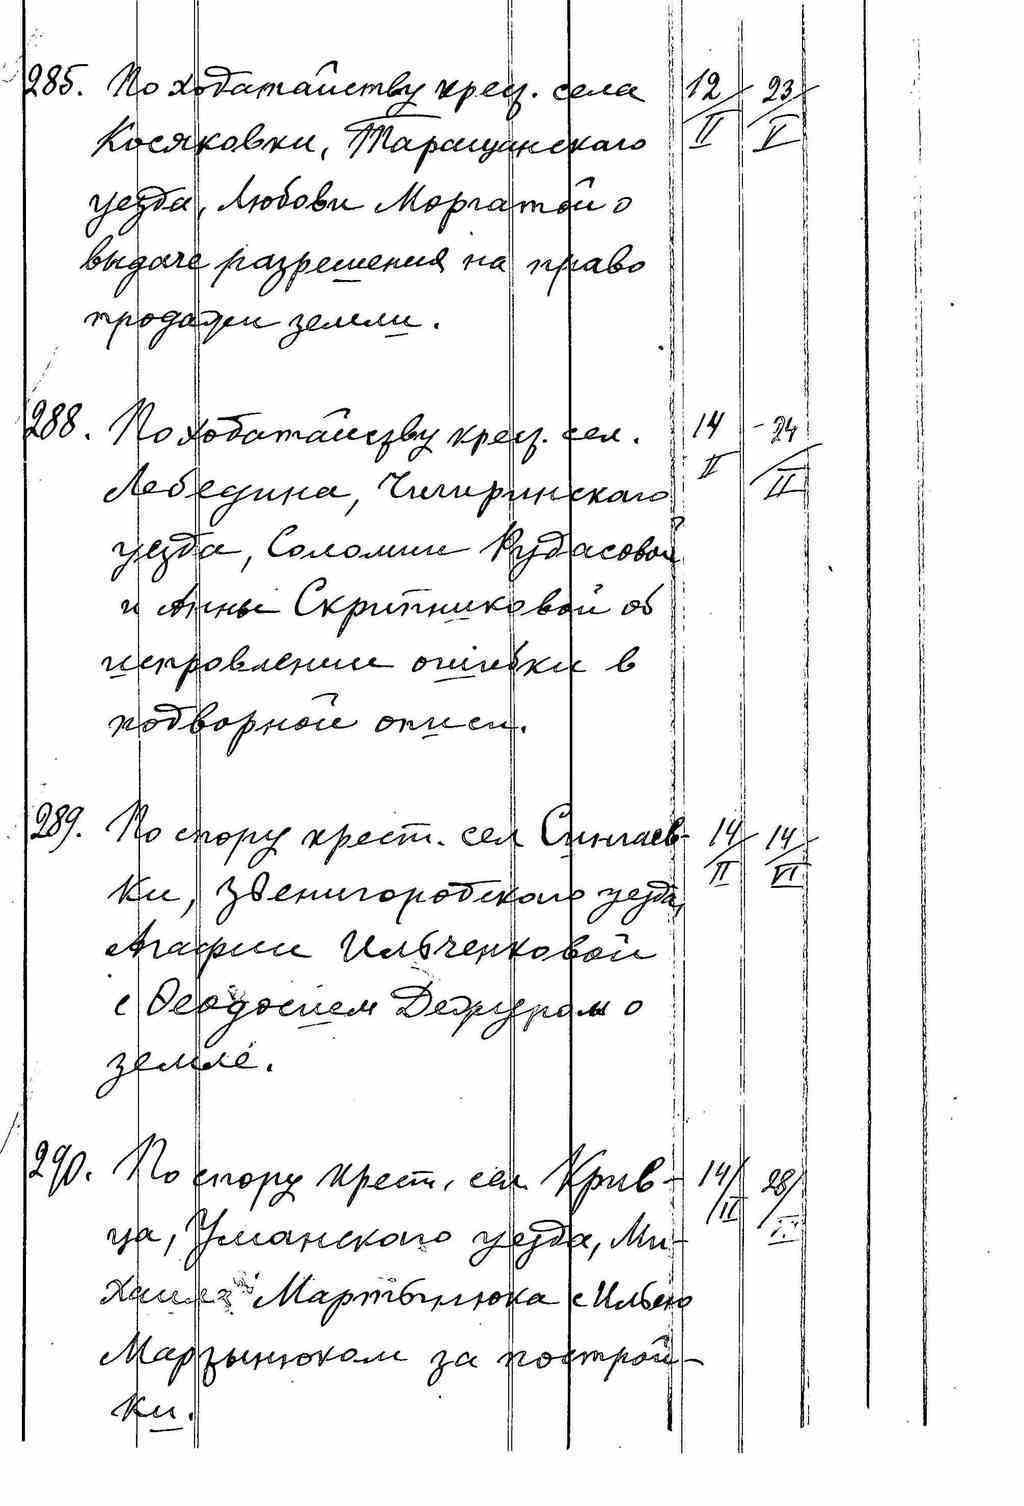 285. По ходатайству крест. села 12/II 23/V
Косяковки, Таращанского
уезда, Любови Моргатой о
выдаче разрешения на право
продажи земли.
288. По ходатайству крест. сел. 14/II - 24/II
Лебедина, Чигиринского
уезда, Соломии Рудасовой
и Анны Скрипниковой об
исправлении ошибки в
подворной описи.
289. По спору крест. сел Сингаев- 14/II 14/VI
ки, Звенигородского уезда,
Агафии Ильченковой
с Феодосием Дежуром о
земле.
290. По спору крест. сел Крив- 14/II 28/
ца, Уманского уезда, Ми-
хаила Мартынюка с Илью
Мартынюком за построй-
ки.